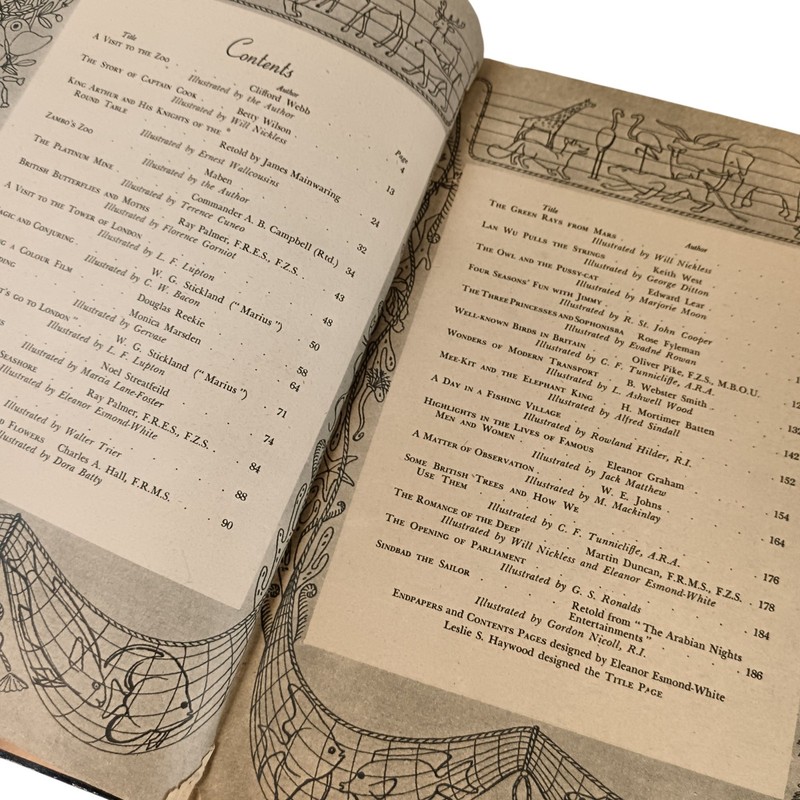 Contents
Title
Author
Page
A Visit to the Zoo
Clifford Webb
4
Illustrated by the Author
The Story of Captain Cook
Betty Wilson
13
Illustrated by Will Nickless
King Arthur and His Knights of the
Round Table
Retold by James Mainwaring
24
Illustrated by Ernest Wallcousins
Zambo's Zoo
Maben
32
Illustrated by the Author
The Platinum Mine
Commander A. B. Campbell (Rtd.)
34
Illustrated by Terence Cuneo
British Butterflies and Moths
Ray Palmer, F.R.E.S., F.Z.S.
43
Illustrated by Florence Gorniot
A Visit to the Tower of London
48
Illustrated by L. F. Lupton
agic and Conjuring
W. G. Stickland ("Marius")
50
Illustrated by C. W. Bacon
g a Colour Film
Douglas Reekie
58
ding
Monica Marsden
64
Illustrated by Gervase
W. G. Stickland ("Marius")
71
Illustrated by L. F. Lupton
t's go to London"
Noel Streatfeild
74
Illustrated by Marcia Lane-Foster
Seashore
Ray Palmer, F.R.E.S., F.Z.S.
84
Illustrated by Eleanor Esmond-White
88
Illustrated by Walter Trier
d Flowers
Charles A. Hall, F.R.M.S.
90
Illustrated by Dora Batty
Title
Author
The Green Rays from Mars
Illustrated by Will Nickless
Lan Wu Pulls the Strings
Keith West
Illustrated by George Ditton
The Owl and the Pussy-cat
Edward Lear
Illustrated by Marjorie Moon
Four Seasons' Fun with Jimmy
Illustrated by R. St. John Cooper
The Three Princesses and Sophonisba
Rose Fyleman
Illustrated by Evadné Rowan
Well-known Birds in Britain
Oliver Pike, F.Z.S., M.B.O.U.
Illustrated by C. F. Tunnicliffe, A.R.A.
Wonders of Modern Transport
B. Webster Smith
132
Illustrated by L. Ashwell Wood
Mee-Kit and the Elephant King
H. Mortimer Batten
142
Illustrated by Alfred Sindall
A Day in a Fishing Village
152
Illustrated by Rowland Hilder, R.I.
Highlights in the Lives of Famous
Men and Women
Eleanor Graham
154
Illustrated by Jack Matthew
A Matter of Observation
W. E. Johns
164
Illustrated by M. Mackinlay
Some British Trees and How We
Use Them
176
Illustrated by C. F. Tunnicliffe, A.R.A.
The Romance of the Deep
Martin Duncan, F.R.M.S., F.Z.S.
178
Illustrated by Will Nickless and Eleanor Esmond-White
The Opening of Parliament
184
Illustrated by G. S. Ronalds
Sindbad the Sailor
Retold from "The Arabian Nights
Entertainments"
186
Illustrated by Gordon Nicoll, R.I.
Endpapers and Contents Pages designed by Eleanor Esmond-White
Leslie S. Haywood designed the Title Page